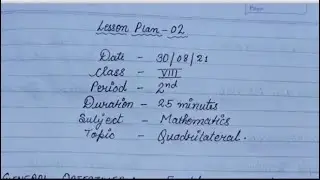 Page
Lesson Plan - 02
Date - 30/08/21
Class - VIII
Period - 2nd
Duration - 25 minutes
Subject - Mathematics
Topic - Quadrilateral.